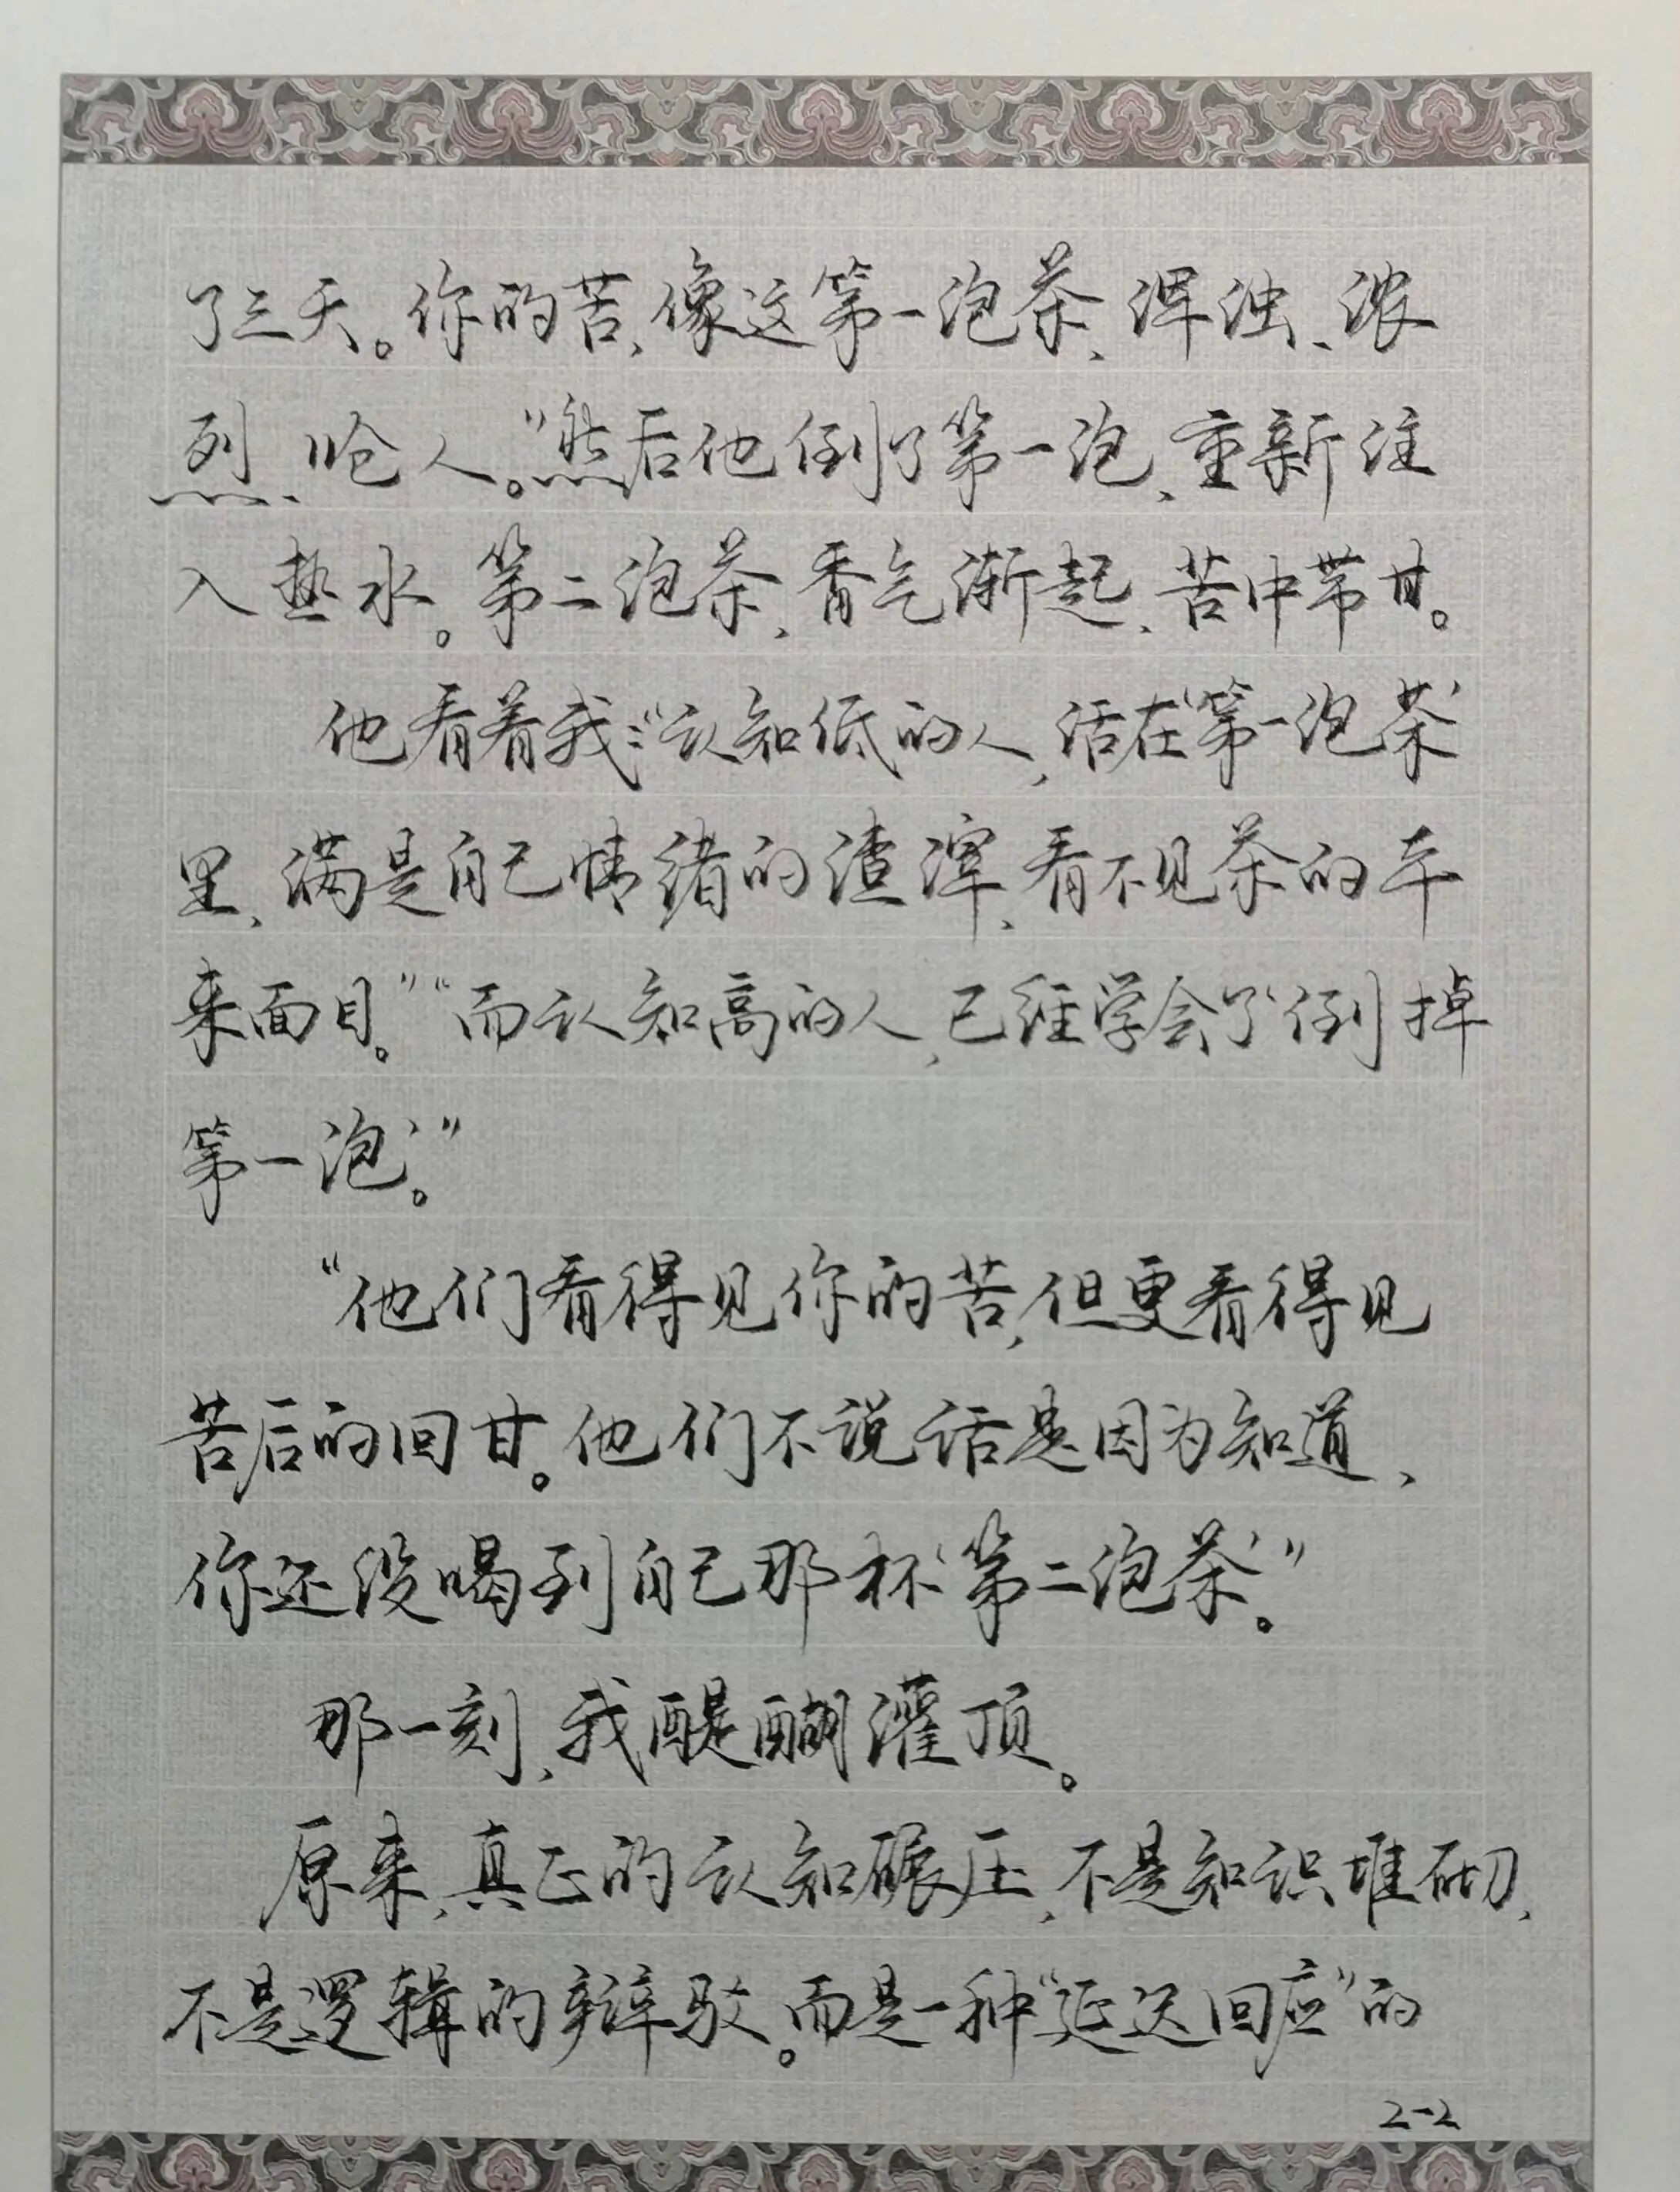 了三天。你的苦，像这第一泡茶，浑浊、浓
烈、呛人。”然后他倒了第一泡，重新注
入热水。第二泡茶，香气渐起，苦中带甘。
他看着我：“认知低的人，活在‘第一泡茶’
里，满是自己情绪的渣滓，看不见茶的本
来面目。”“而认知高的人，已经学会了‘倒掉
第一泡’。”
“他们看得见你的苦，但更看得见
苦后的回甘。他们不说话是因为知道，
你还没喝到自己那杯‘第二泡茶’。”
那一刻，我醍醐灌顶。
原来，真正的认知碾压，不是知识堆砌，
不是逻辑的辩驳。而是一种“延迟回应”的
2-2